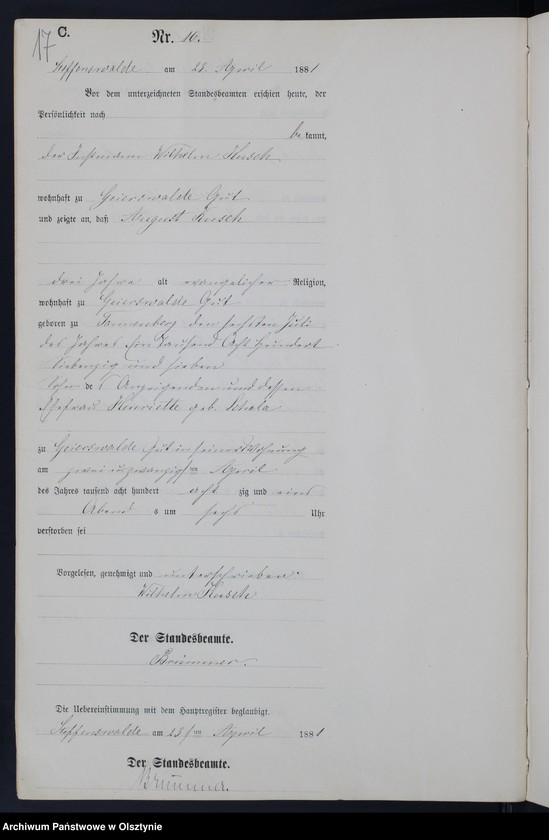 17 C. Nr. 10.
Steffenswalde am 23. April 1881
Vor dem unterzeichneten Standesbeamten erschien heute, der
Persönlichkeit nach
be kannt,
der Instmann Wilhelm Rusch
wohnhaft zu Geierswalde Gut
und zeigte an, daß August Rusch
drei Jahre alt evangelischer Religion,
wohnhaft zu Geierswalde Gut
geboren zu Tannenberg den sechsten Juli
des Jahres Ein Tausend Acht Hundert
siebenzig und sieben
Sohn des Anzeigenden und dessen
Ehefrau Henriette geb.
zu Geierswalde Gut in seiner Wohnung
am zwei und zwanzigsten April
des Jahres tausend acht hundert acht zig und eins
Abend s um sechs Uhr
verstorben sei
Vorgelesen, genehmigt und unterschrieben
Wilhelm Rusch
Der Standesbeamte.
Brümmer.
Die Uebereinstimmung mit dem Hauptregister beglaubigt.
Steffenswalde am 23ten April 1881
Der Standesbeamte.
Brümmer.
Archiwum Państwowe w Olsztynie